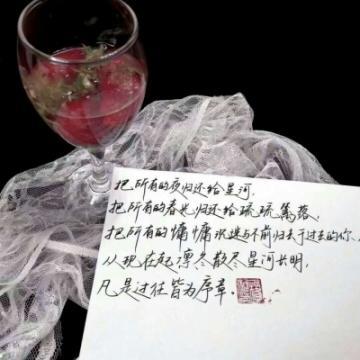 把所有的夜归还给星河,
把所有的春光归还给琉琉篱落,
把所有的慵慵沉迷与不前归去于过去的你、
从现在起凛冬散尽星河长明,
凡是过往皆为序章.